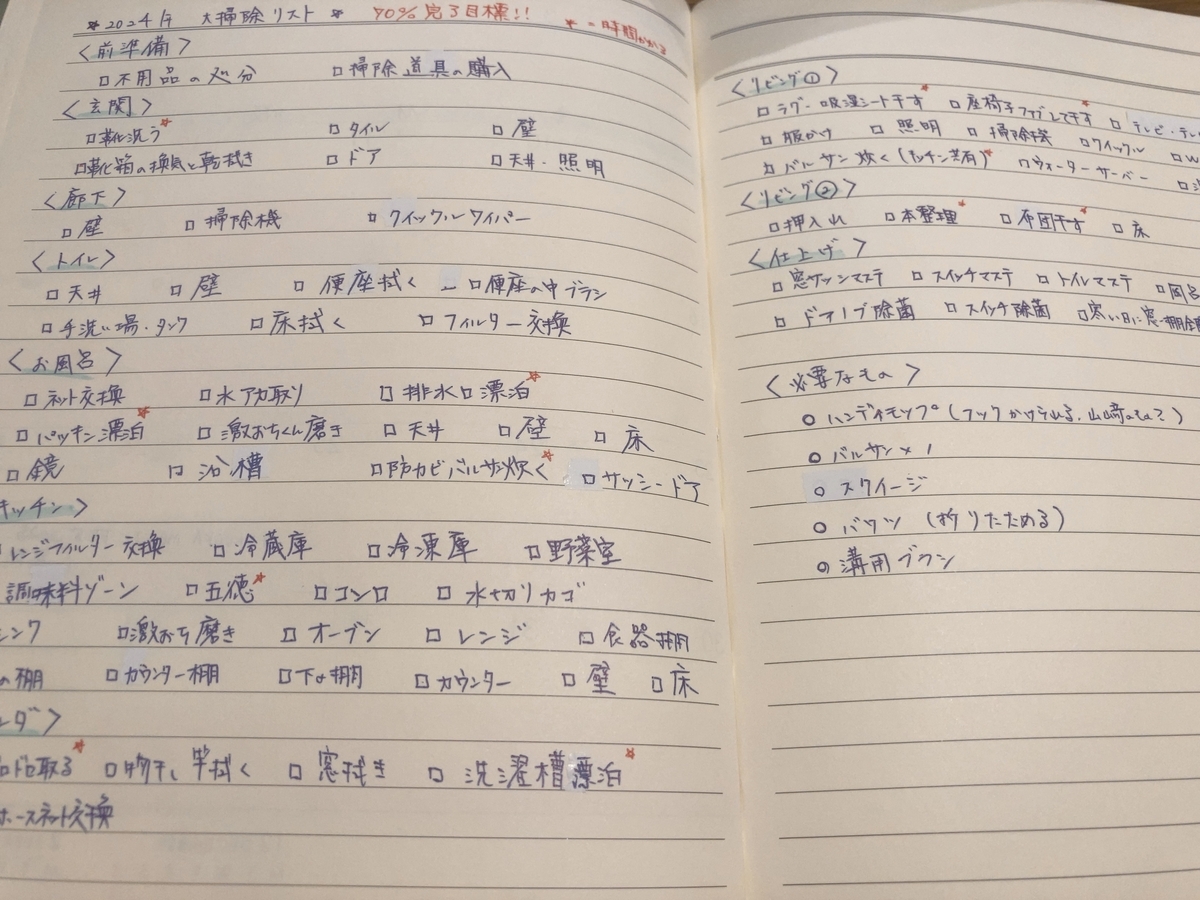 *2024年 大掃除リスト * 70%完了目標!! *=時間かかる
〈前準備〉
□不用品の処分 □掃除道具の購入
〈玄関〉
□靴洗う* □タイル □壁
□靴箱の換気と乾拭き □ドア □天井・照明
〈廊下〉
□壁 □掃除機 □クイックルワイパー
〈トイレ〉
□天井 □壁 □便座拭く □便座の中ブラシ
□手洗い場・タンク □床拭く □フィルター交換
〈お風呂〉
□ネット交換 □水アカ取り □排水口漂泊*
□パッキン漂泊* □激おちくん磨き □天井 □壁 □床
□鏡 □浴槽 □防カビバルサン炊く* □サッシードア
キッチン〉
レンジフィルター交換 □冷蔵庫 □冷凍庫 □野菜室
調味料ゾーン □五徳* □コンロ □水切りカゴ
シンク □激おち磨き □オーブン □レンジ □食器棚
の棚 □カウンター棚 □下の棚 □カウンター □壁 □床
ンダ〉
□ドロ取る* □物干し竿拭く □窓拭き □洗濯槽漂泊*
ホースネット交換
〈リビング①〉
□ラグ・吸湿シート干す* □座椅子ファブして干す* □テレビ・テレ
□服かけ □照明 □掃除機 □クイックル □W
□バルサン炊く(キッチン共有)* □ウォーターサーバー
〈リビング②〉
□押入れ □本整理* □布団干す* □床
〈仕上げ〉
□窓サッシマステ □スイッチマステ □トイレマステ □風呂
□ドアノブ除菌 □スイッチ除菌 □寒い日に窓・棚全
〈必要なもの〉
○ハンディモップ(フックかけられる、山崎のもの?)
○バルサン×1
○スクイージ
○バケツ(折りたためる)
○溝用ブラシ